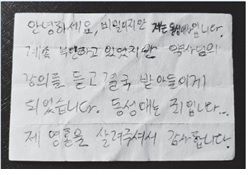 안녕하세요, 비밀이지만 저는 동성애자입니다.
계속 부인하고 있었지만 목사님의
강의를 듣고 결국 받아들이게
되었습니다. 동성애는 죄입니다...
제 영혼을 살려주셔서 감사합니다.